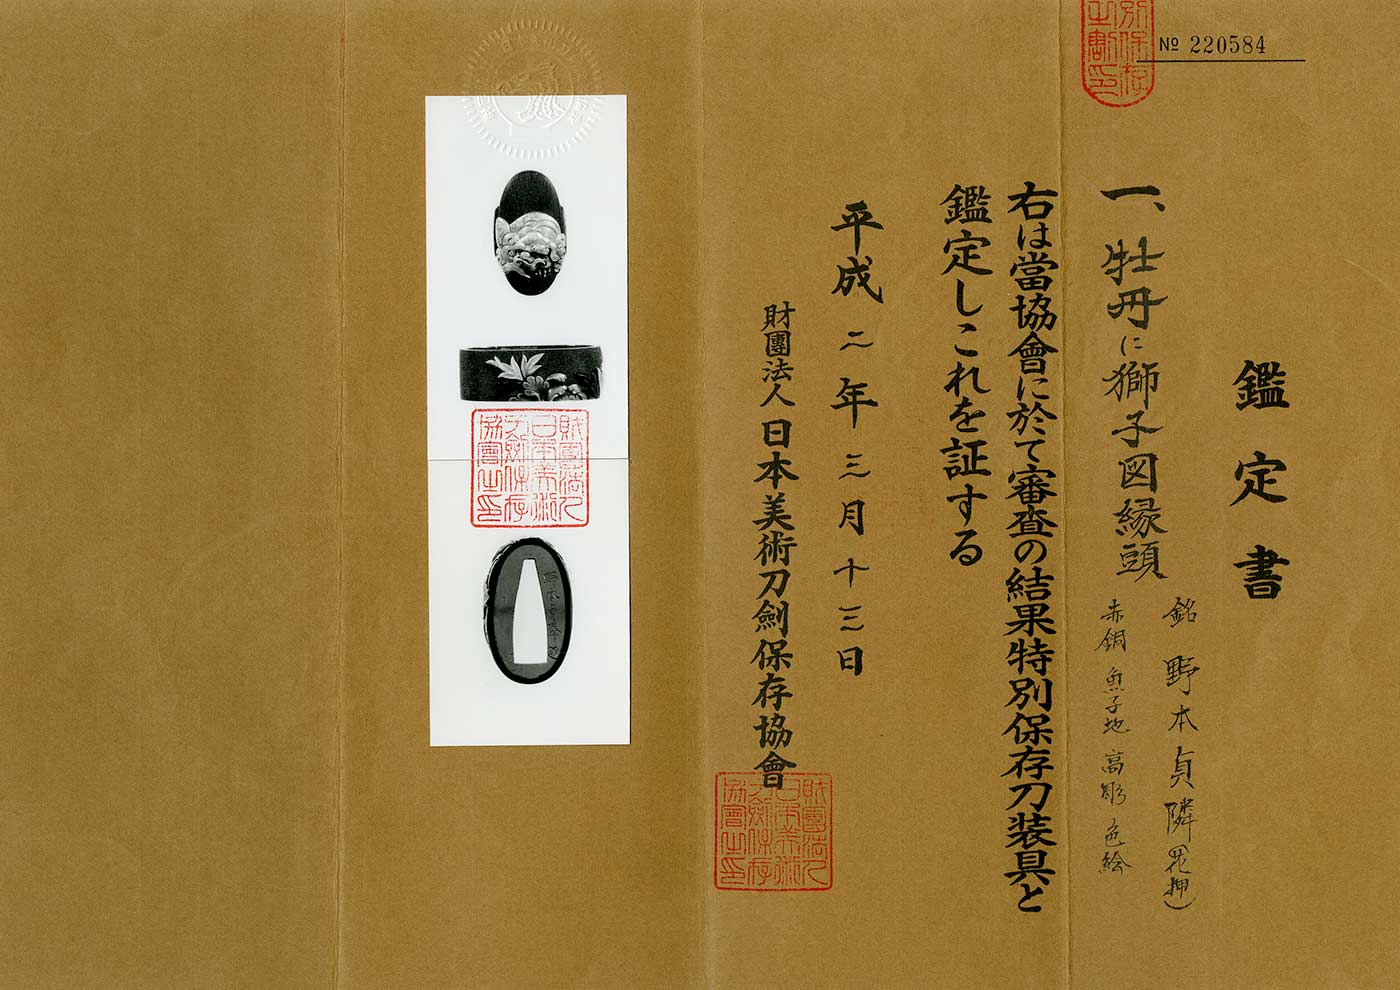 № 220584
鑑定書
一、牡丹に獅子図縁頭
銘 野本貞隣(花押)
赤銅 魚子地 高彫 色絵
右は當協會に於て審査の結果特別保存刀装具と
鑑定しこれを証する
平成二年三月十三日
財團法人日本美術刀劍保存協會
財團法人
日本美術
刀劍保存
協會之印
財團法人
日本美術
刀劍保存
協會之印
別保存
之割印